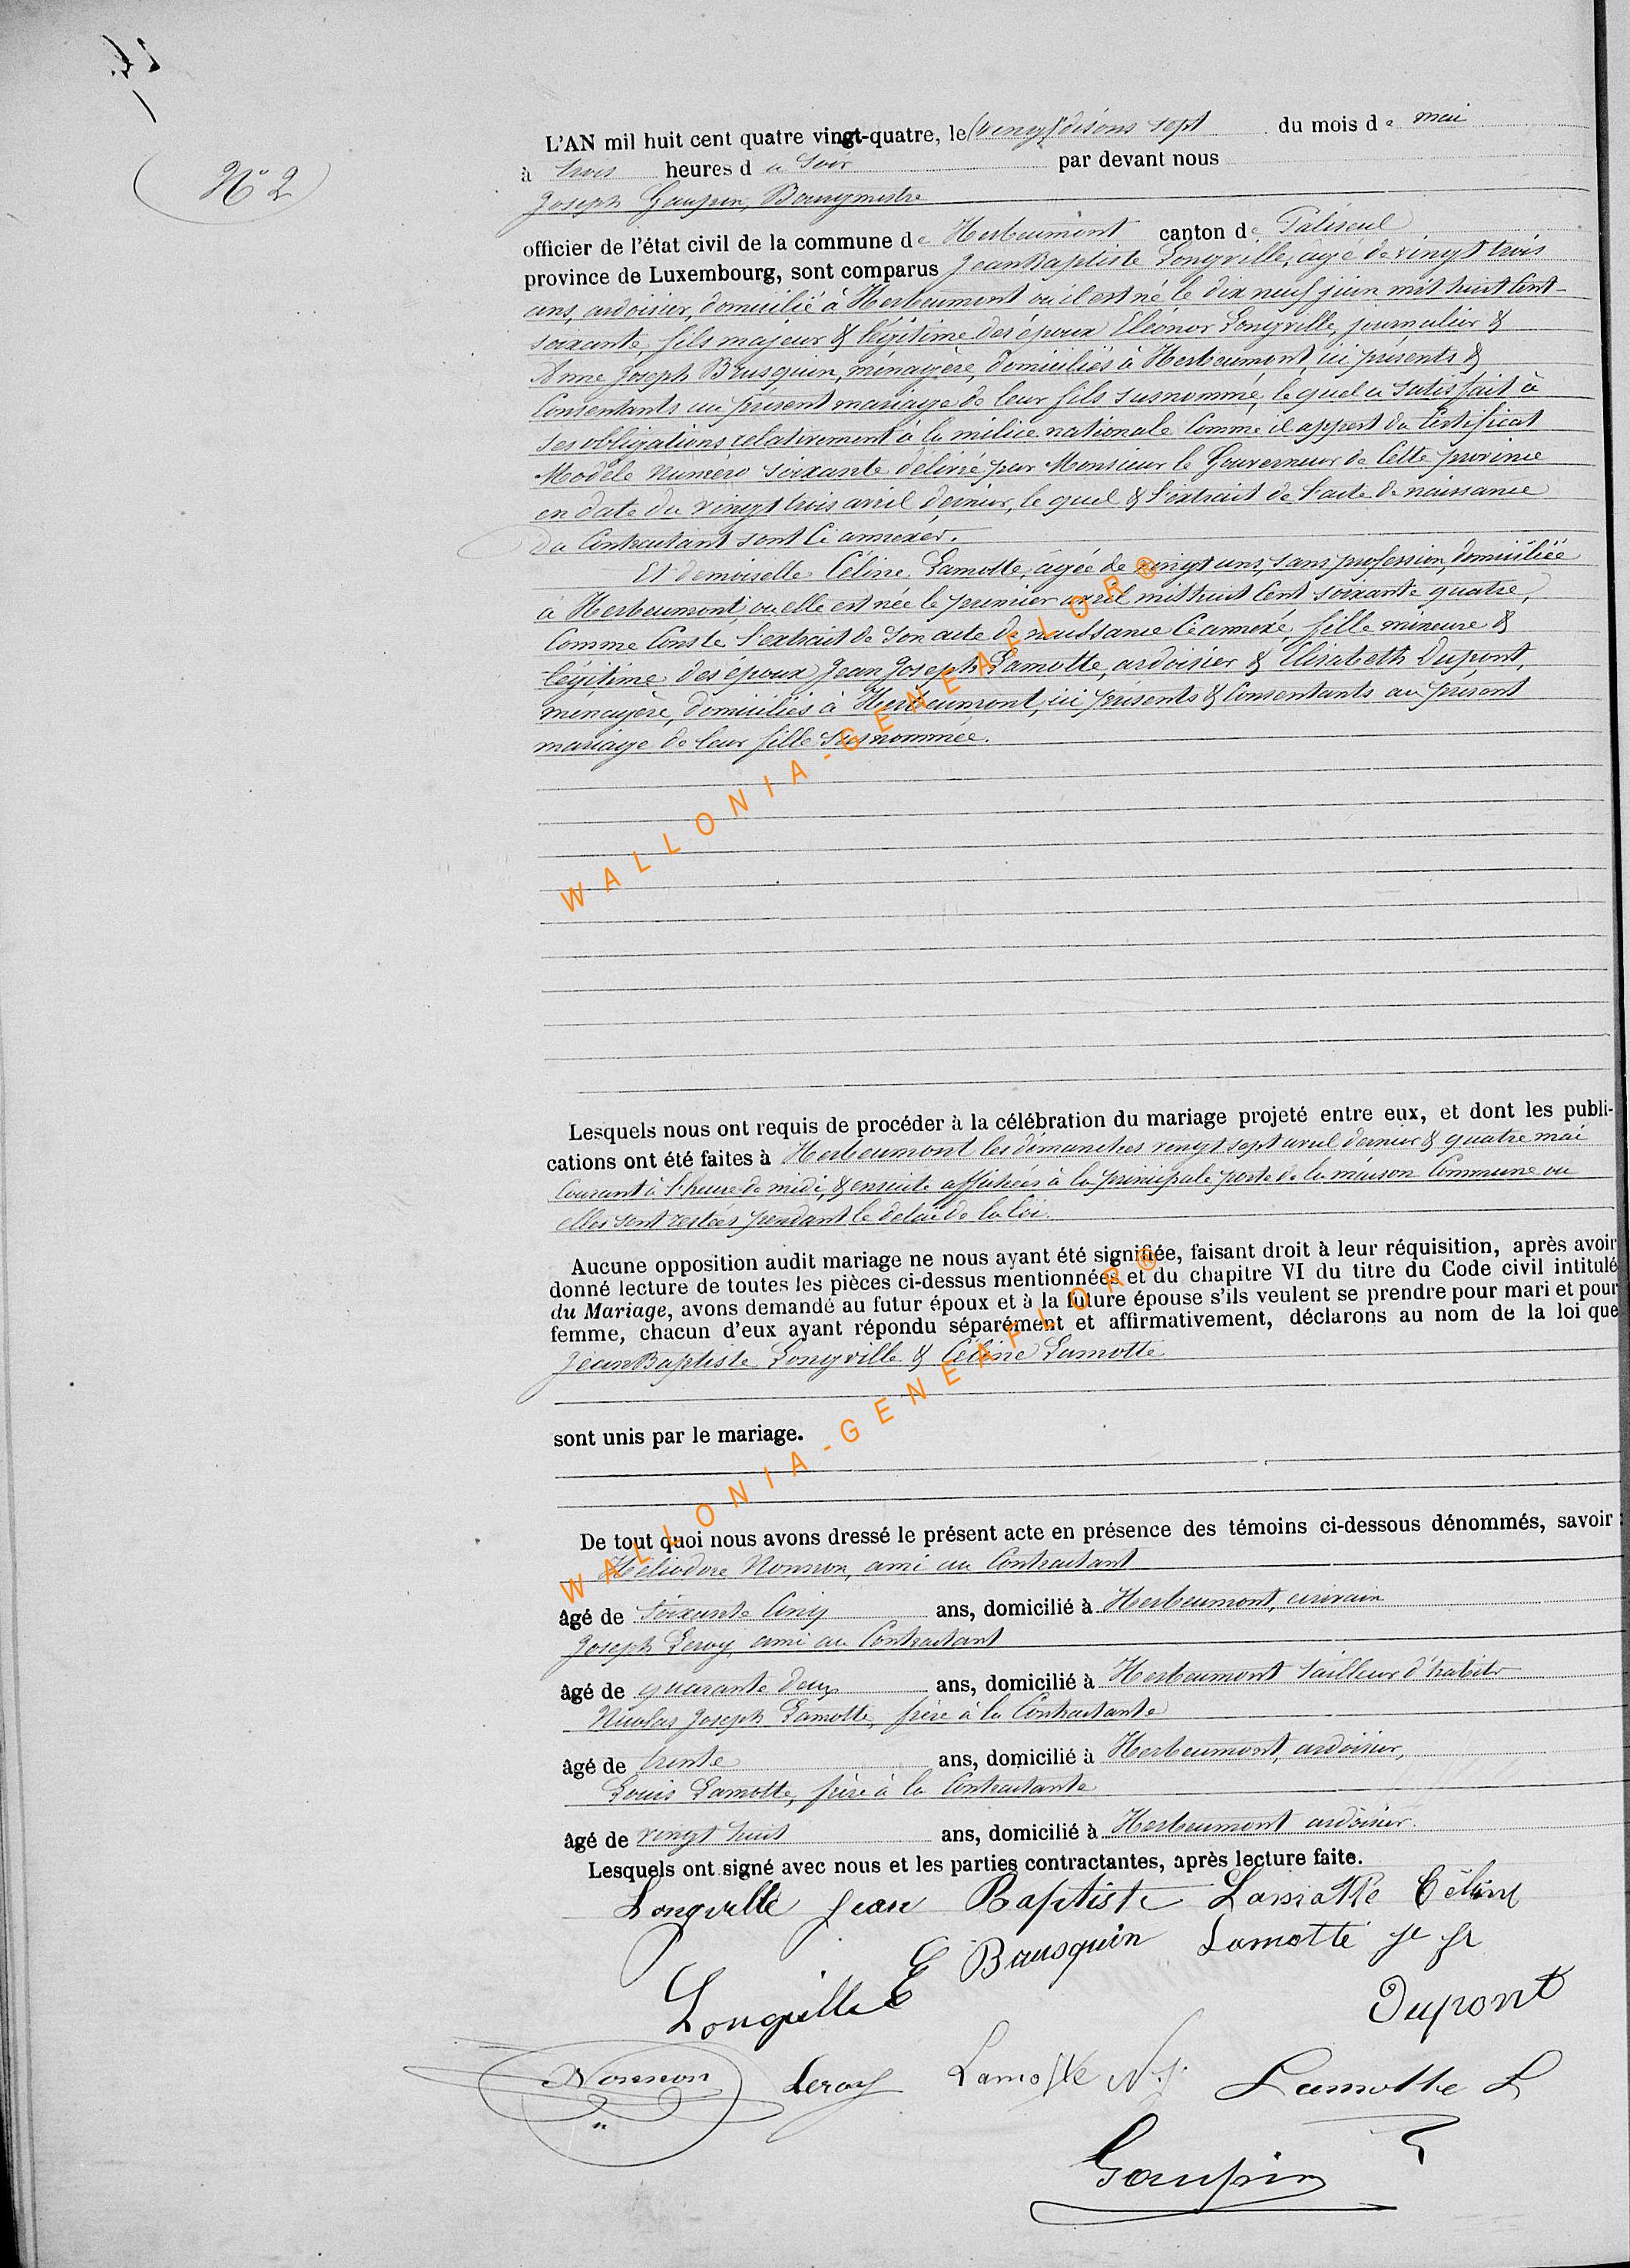 24
N° 2
L'AN mil huit cent quatre vingt-quatre, le (vingt) disons sept du mois de mai
à trois heures du soir par devant nous
Joseph Gaupin, Bourgmestre
officier de l'état civil de la commune de Herbeumont canton de Paliseul
province de Luxembourg, sont comparus Jean Baptiste Longville, âgé de vingt trois
ans, ardoisier, domicilié à Herbeumont où il est né le dix neuf juin mil huit cent
soixante, fils majeur & légitime des époux Eléonor Longville, journalier &
Anne Joseph Brusquin, ménagère, domiciliés à Herbeumont, ici présents &
Consentants au présent mariage de leur fils susnommé, le quel a satisfait à
ses obligations relativement à la milice nationale Comme il appert du Certificat
Modèle numéro soixante délivré par Monsieur le Gouverneur de Cette province
en date du vingt trois avril dernier, le quel & l'extrait de l'acte de naissance
du Contractant sont Ci annexés.
Et demoiselle Céline Lamotte, âgée de vingt ans, sans profession, domiciliée
à Herbeumont, ou elle est née le premier avril mil huit Cent soixante quatre,
Comme Conste l'extrait de son acte de naissance Ci annexé, fille mineure &
légitime des époux Jean Joseph Lamotte, ardoisier & Elisabeth Dupont,
ménagère, domiciliés à Herbeumont, ici présents & Consentants au présent
mariage de leur fille susnommée.
WALLONIA-GENEAFLOR®
Lesquels nous ont requis de procéder à la célébration du mariage projeté entre eux, et dont les publi-
cations ont été faites à Herbeumont les dimanches vingt sept avril dernier & quatre mai
Courant à l'heure de midi, & ensuite affichées à la principale porte de la maison Commune ou
elles sont restées pendant le délai de la loi.
Aucune opposition audit mariage ne nous ayant été signifiée, faisant droit à leur réquisition, après avoir
donné lecture de toutes les pièces ci-dessus mentionnées et du chapitre VI du titre du Code civil intitulé
du Mariage, avons demandé au futur époux et à la future épouse s'ils veulent se prendre pour mari et pour
femme, chacun d'eux ayant répondu séparément et affirmativement, déclarons au nom de la loi que
Jean Baptiste Longville & Céline Lamotte
sont unis par le mariage.
WALLONIA-GENEAFLOR®
De tout quoi nous avons dressé le présent acte en présence des témoins ci-dessous dénommés, savoir :
Héliodore Nonnon, ami au Contractant
âgé de soixante Cinq ans, domicilié à Herbeumont, écrivain
Joseph Leroy, ami au Contractant
âgé de quarante deux ans, domicilié à Herbeumont tailleur d'habits
Nicolas Joseph Lamotte, frère à la Contractante
âgé de trente ans, domicilié à Herbeumont, ardoisier,
Louis Lamotte, frère à la Contractante
âgé de vingt huit ans, domicilié à Herbeumont ardoisier.
Lesquels ont signé avec nous et les parties contractantes, après lecture faite.
Longville Jean Baptiste Lamotte Céline
Brusquin Lamotte
Longville E Dupont
Nonnon Leroy Lamotte N. J. Lamotte L
Gaupin